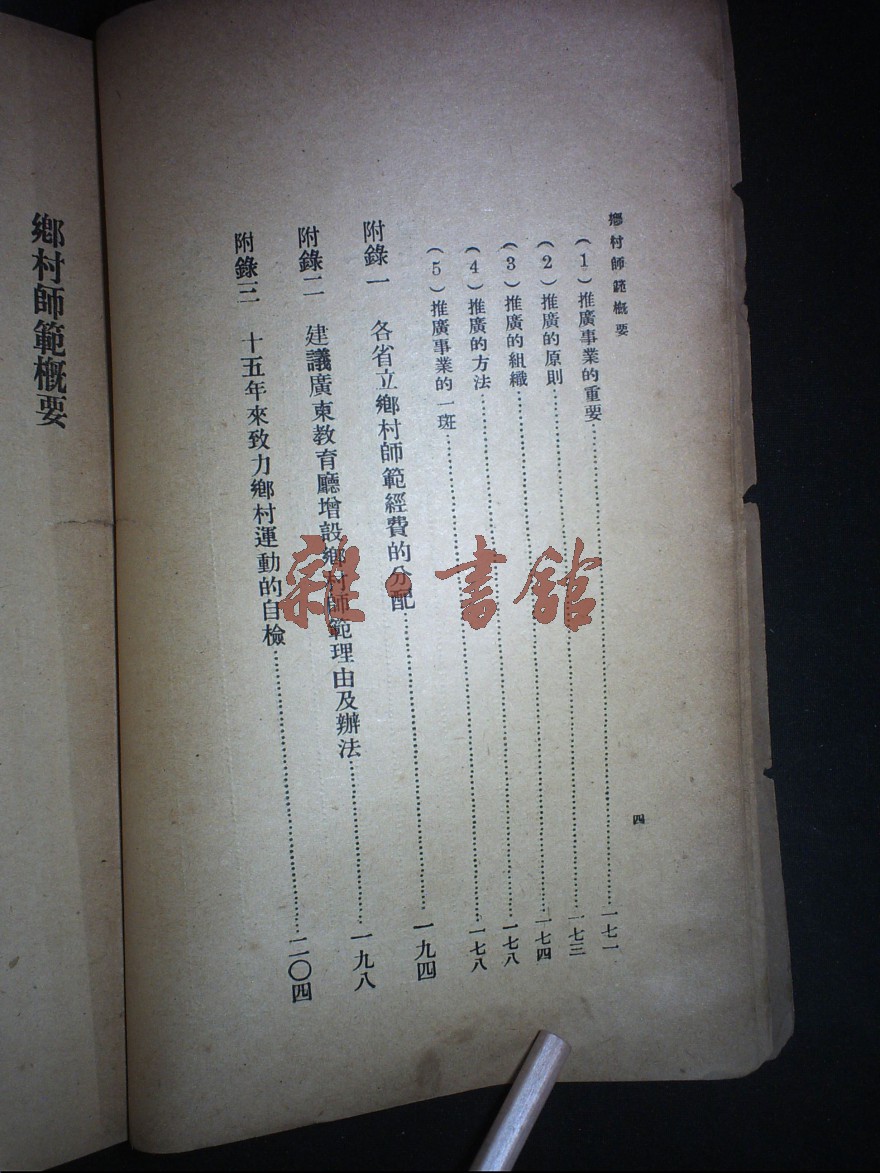 鄉村師範概要
四
(1)推廣事業的重要……一七一
(2)推廣的原則……一七三
(3)推廣的組織……一七四
(4)推廣的方法……一七八
(5)推廣事業的一斑……一七八
附錄一 各省立鄉村師範經費的分配……一九四
附錄二 建議廣東教育廳增設鄉村師範理由及辦法……一九八
附錄三 十五年來致力鄉村運動的自檢……二〇四
鄉村師範概要
雜·書館